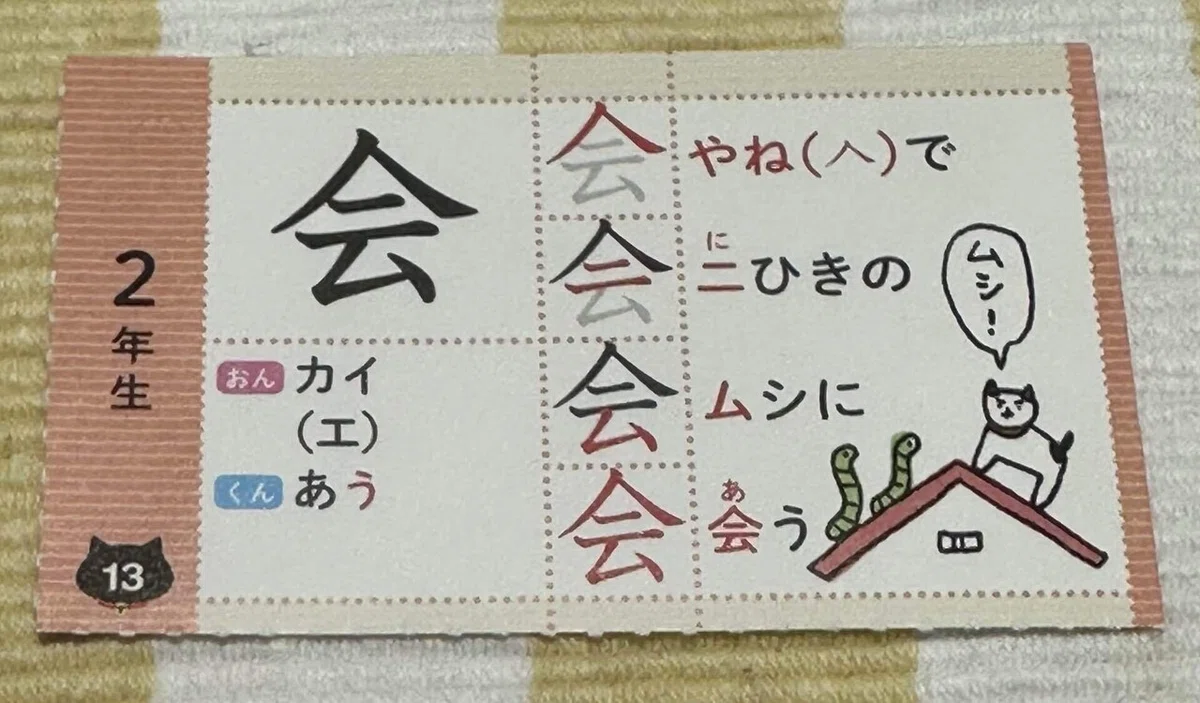 2年生
13
会
おん カイ
(エ)
くん あう
会
会
会
会
やね(𠆢)で
に
二ひきの
ムシに
あ
会う
ムシ!